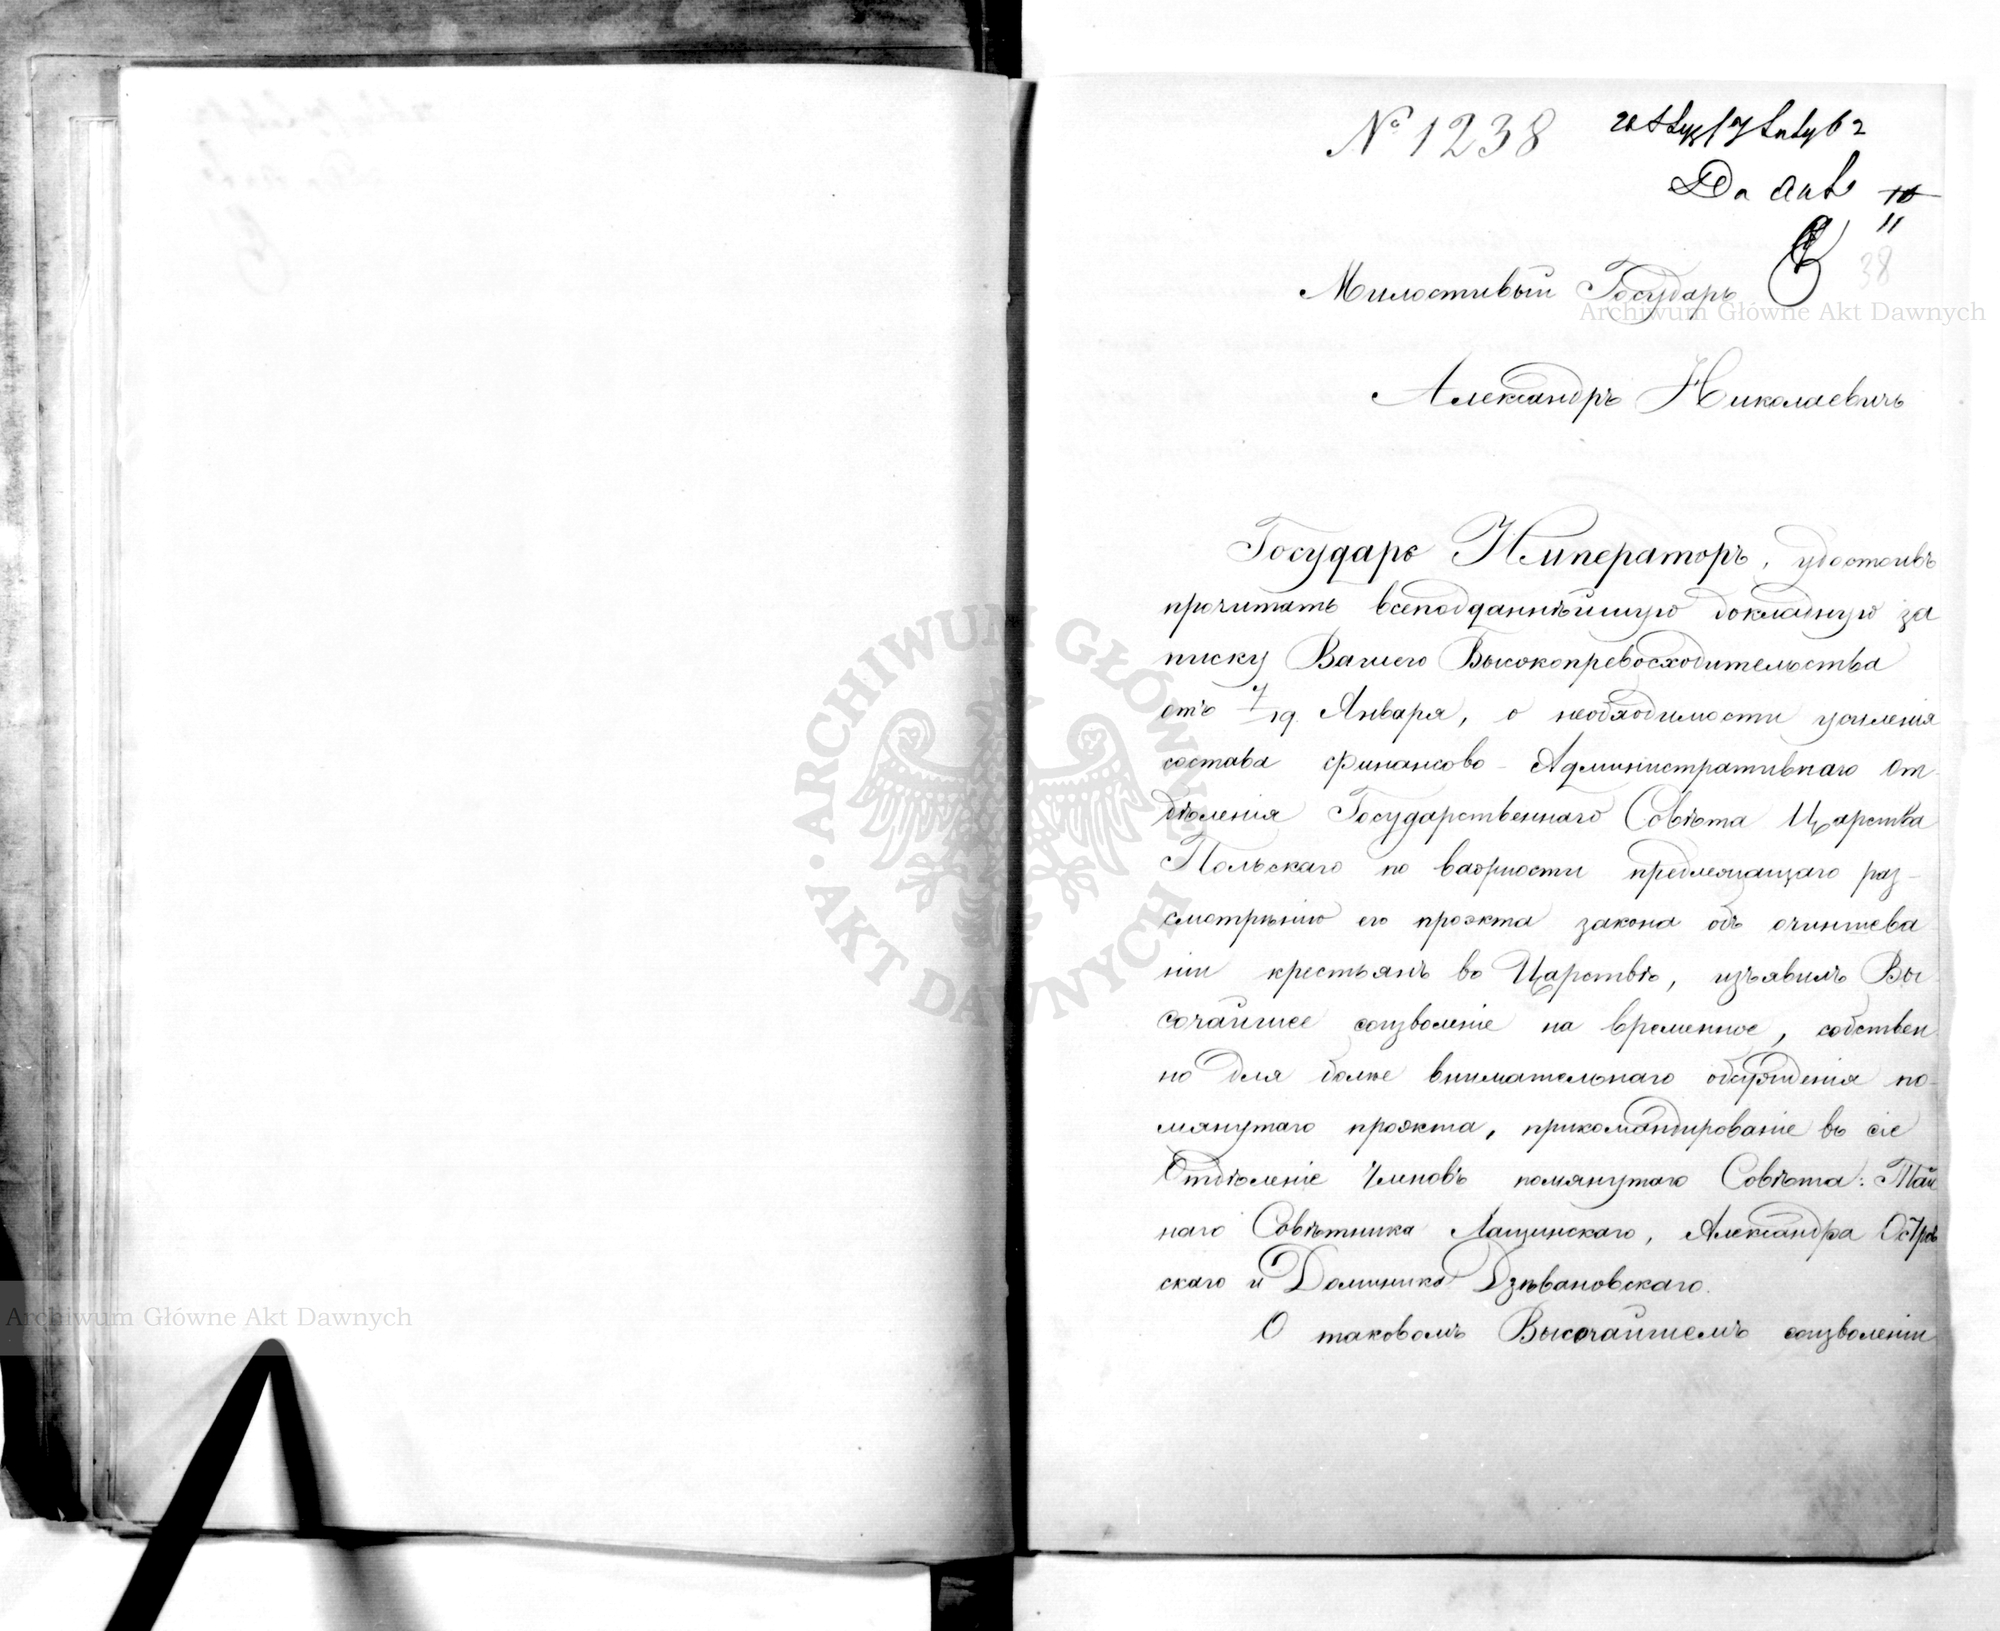 № 1238
Do akt 10
11
38
Милостивый Государь
Александръ Николаевичъ
Государь Императоръ, удостоивъ
прочитать всеподданнѣйшую докладную за
писку Вашего Высокопревосходительства
отъ 7/19. Января, о необходимости усиленія
состава Финансово-Административнаго От-
дѣленія Государственнаго Совѣта Царства
Польскаго по важности предлежащаго раз-
смотрѣнію его проэкта закона объ очиншева
ніи крестьянъ во Царствѣ, изъявилъ Вы
сочайшее соизволеніе на временное, собствен
но для болѣе внимательнаго обсужденія по-
мянутаго проэкта, прикомандированіе въ сіе
Отдѣленіе Членовъ помянутаго Совѣта: Тай
наго Совѣтника Лащинскаго, Александра Остров
скаго и Доминика Дзѣвановскаго.
О таковомъ Высочайшемъ соизволеніи
Archiwum Główne Akt Dawnych
ARCHIWUM GŁÓWNE AKT DAWNYCH
Archiwum Główne Akt Dawnych